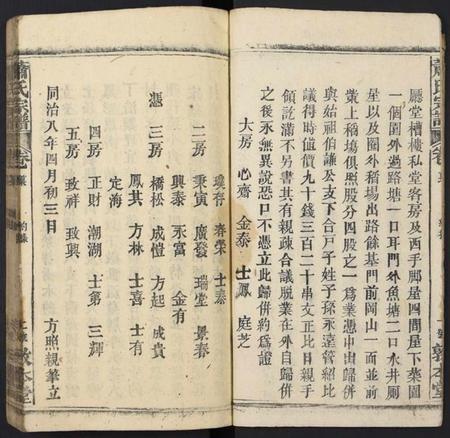 蕭氏宗譜
廳堂槽樓私堂客房及西手腳屋四間屋下菜園
一個園外過路塘一口耳門外魚塘二口水井廁
屋以及圈外稻場出路餘基門前岡山一面並前
業上稻塲俱照股分四股之一爲業憑中出歸併
與始祖伯謙公支下合戶子姓子孫永遠管紹比
議得時值價九十錢三百二十串文正比日親手
領訖滿不另書其有親疎合議脫業在外自歸併
之後永無異說恐口不憑立此歸併約爲證
大房 心齋 金泰 士鳳 庭芝
敦本堂
璞存 春榮 士泰
二房 秉寅 廣發 瑞堂 景泰
興泰 永富 金有
憑三房 橋松 成愷 方起 成貴
鳳其 方林 士喜 士有
定海
四房 正財 潮湖 士第 三輝
五房 致祥 致興
同治八年四月初三日 方照親筆立
蕭氏宗譜
敦本堂